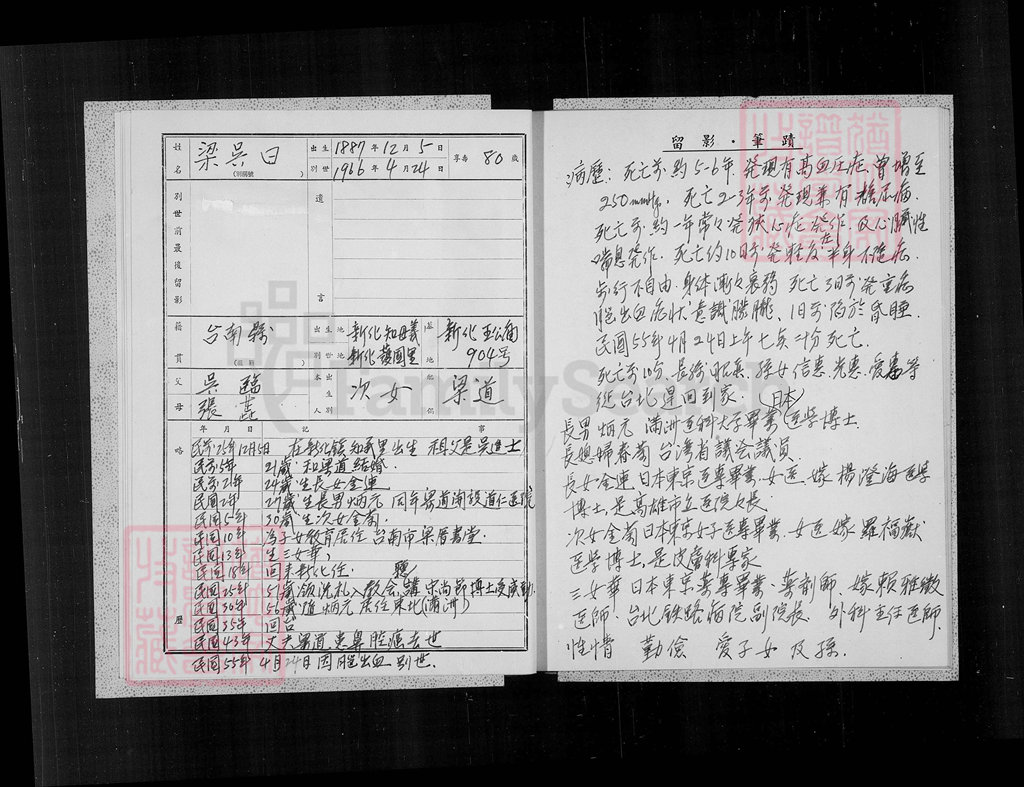 姓名 梁吳日 (別號) 出生 1887年12月5日 別世 1966年4月24日 享壽 80歲
別世前最後留影 遺言
籍貫 台南縣 出生地 新化知母義 別世地 新化護國里 墓地 新化王公廟 904号
父 吳臨 母 張 本出生人別 次女 配偶 梁道
略歷 年月日 記事
民前25年12月5日 在新化鎮知母里出生 祖父是吳進士
民前5年 21歲 和梁道結婚.
民前2年 24歲 生長女金連
民國2年 27歲 生長男炳元 同年梁道開設道仁医院
民国5年 30歲 生次女金蘭.
民国10年 為子女教育居住台南市梁厝書堂.
民国13年 生三女華,
民国18年 回来新化住. 聽
民国25年 51歲 領洗礼入教会, 講宋尚節博士受感動.
民国30年 56歲 隨炳元居住東北(滿洲)
民国35年 回台
民国43年 丈夫梁道患鼻腔癌去世
民国55年4月24日因腦出血別世.
留影・筆蹟
病歷: 死亡前約5-6年発現有高血圧症, 曾增至
250mmHg. 死亡2-3年前発現兼有糖尿病.
死亡前約一年常々発狹心症発作, 及心臟性
喘息発作. 死亡約10日前発輕度左半身不遂症.
步行不自由, 身体漸々衰弱 死亡3日前発重症
腦出血症狀, 意識朦朧, 1日前陷於昏睡.
民國55年4月24日上午七矣二十分死亡.
死亡前10分, 長孫昭 孫女信惠, 光惠, 愛惠等
從台北運回到家
長男炳元 滿洲医科大学畢業(日本)医学博士.
長媳婦春菊 台湾省議会議員.
長女金連 日本東京医專畢業, 女医, 嫁楊澄海医学
博士, 是高雄市立医院々長.
次女金蘭 日本東京女子医專畢業, 女医嫁羅福嶽
医学博士, 是皮膚科專家
三女華 日本東京薬專畢業, 薬剤師, 嫁賴雅徽
医師, 台北鉄路病院副院長, 外科主任医師.
性情 勤儉 愛子女及孫.